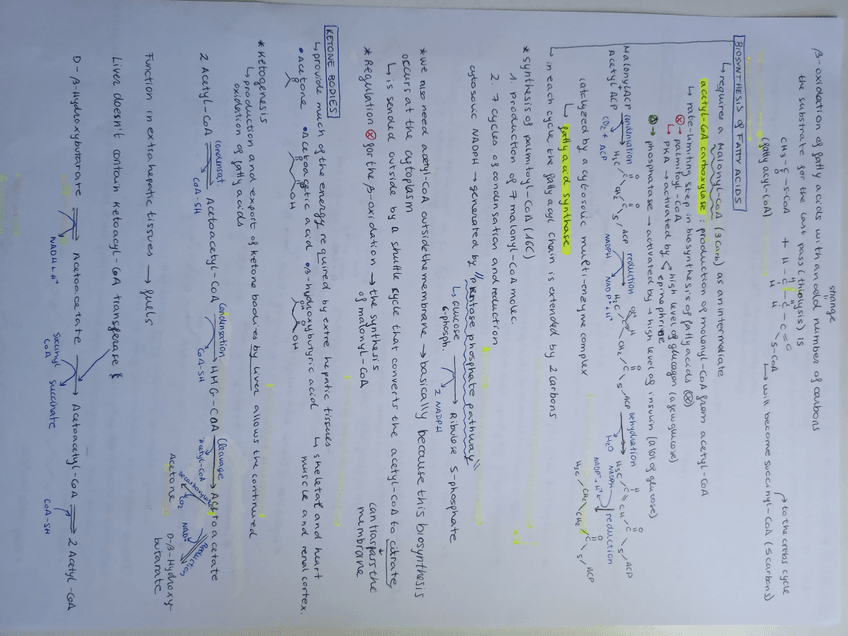 β-oxidation of fatty acids with an odd number of carbons
strange
the substrate for the last pass (thiolysis) is
CH3-C-S-CoA + H-C-C-C=O
(fatty acyl-CoA)
S-CoA
will become succinyl-CoA (5 carbons)
to the krebs cycle
BIOSYNTHESIS OF FATTY ACIDS
↳ requires a Malonyl-CoA (3 carb) as an intermediate
acetyl-CoA carboxylase: production of malonyl-CoA from acetyl-CoA
↳ rate-limiting step in biosynthesis of fatty acids
palmitoyl-CoA
↳ PKA → activated by
high level of glucagon (a few glucose)
epinephrine
phosphatase → activated by → high level of insulin (a lot of glucose)
Malonyl ACP
Acetyl ACP
condensation
CO2 + ACP
H3C CH2 C S ACP
reduction
NADPH
NADP+ H+
H3C CH2 C S ACP
dehydration
H2O
H3C CH CH C S ACP
NADPH
NADP+ H+
reduction
H3C CH2 CH2 C S ACP
catalyzed by a cytosolic multi-enzyme complex
↳ fatty acid synthase
↳ in each cycle the fatty acyl chain is extended by 2 carbons
* synthesis of palmitoyl-CoA (16C)
1. production of 7 malonyl-CoA molec.
2. 7 cycles of condensation and reduction
cytosolic NADPH → generated by "pentose phosphate pathway"
↳ glucose 6-phosph. → Ribulose 5-phosphate
2 NADPH
* we also need acetyl-CoA outside the membrane → basically because this biosynthesis
occurs at the cytoplasm
↳ is sended outside by a shuttle cycle that converts the acetyl-CoA to citrate
can traspass the
membrane
* Regulation for the β-oxidation → the synthesis
of malonyl-CoA
KETONE BODIES
↳ provide much of the energy required by extra hepatic tissues
↳ skeletal and heart
muscle and renal cortex.
• Acetone • Acetoacetic acid • β-hydroxybutyric acid
OH
OH
* Ketogenesis
↳ production and export of ketone bodies by liver allows the continued
oxidation of fatty acids
2 Acetyl-CoA → Acetoacetyl-CoA → HMG-CoA → Acetoacetate
condensat
CoA-SH
condensation
CoA-SH
cleavage
acetyl-CoA
CO2
NADH
Acetone
D-β-Hydroxy-
butarate
Function in extrahepatic tissues → fuels
Liver doesn't contain ketoacyl-CoA transferase
D-β-Hydroxybutarate ⇌ Acetoacetate → Acetoacetyl-CoA ⇌ 2 Acetyl-CoA
NADH+H+
succinyl CoA
succinate
CoA-SH